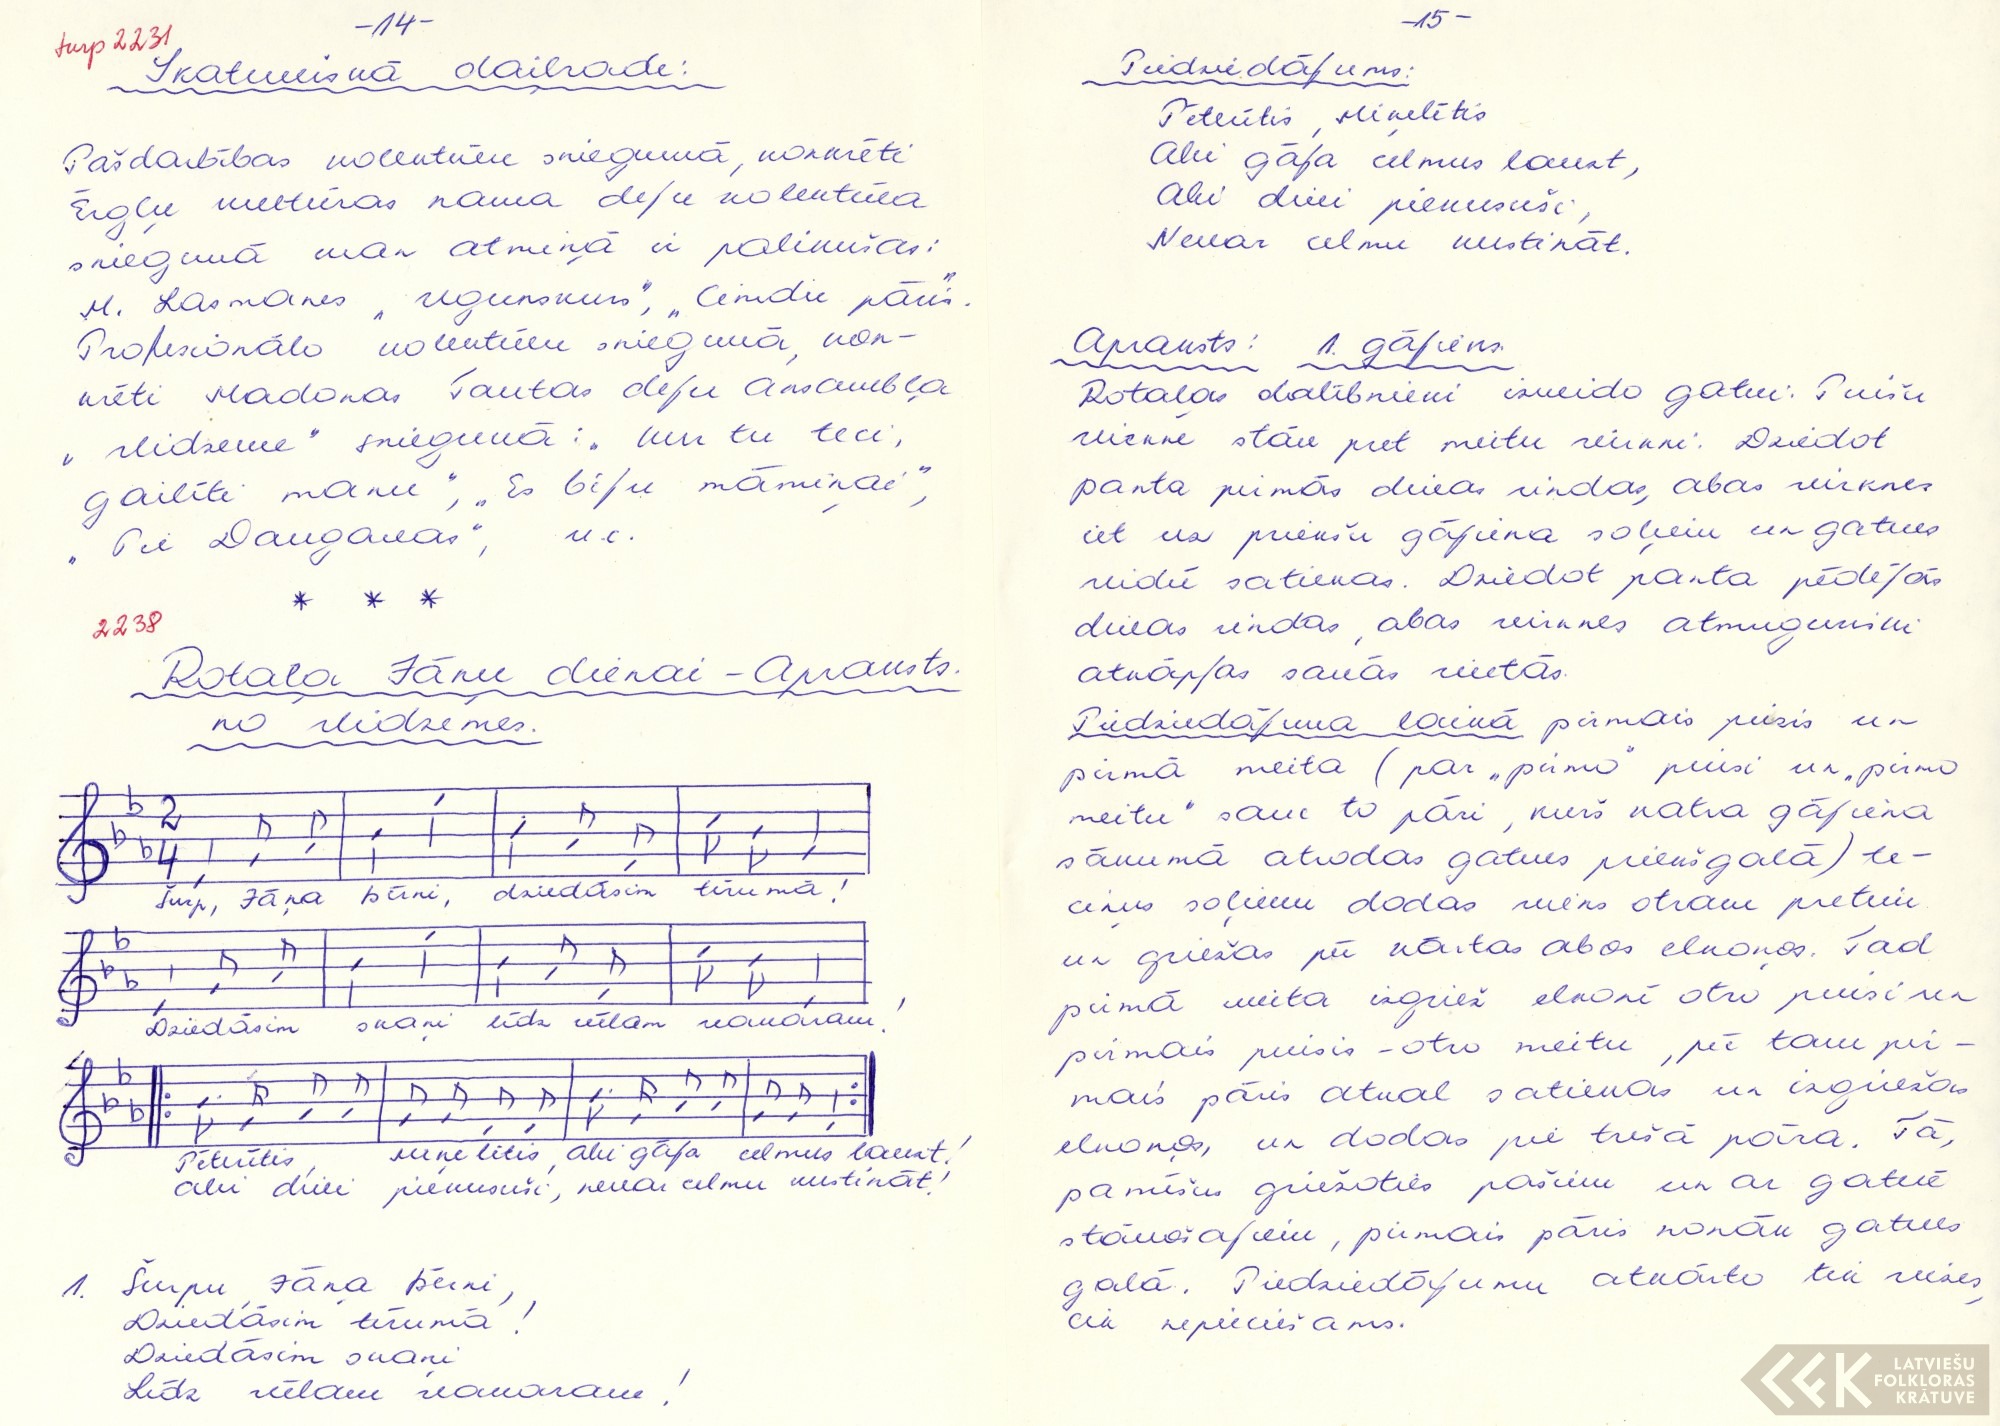 -14-
turp 2231
Skatuviskā daiļrade:
Pašdarbības kolektīvu sniegumā, konkrēti
Ērgļu kultūras nama deju kolektīva
sniegumā man atmiņā ir palikušas:
M. Lasmanes „Ugunskurs”, „Cimdu pāris”.
Profesionālo kolektīvu sniegumā, kon-
krēti Madonas Tautas deju ansambļa
„Vidzeme” sniegumā: „Kur tu teci,
gailīti manu”, „Es biju māmiņai”,
„Pie Daugavas”, u.c.
* * *
2238
Rotaļa Jāņu dienai - Apraksts.
no Vidzemes.
2
4
Šurp, Jāņa bērni, dziedāsim tīrumā!
Dziedāsim skaņi līdz vēlam vakaram!
Pēterītis, Miķelītis, abi gāja celmus lauzt!
abi divi piekusuši, nevar celmu kustināt!
1. Šurpu, Jāņa bērni,
Dziedāsim tīrumā!
Dziedāsim skaņi
Līdz vēlam vakaram!
-15-
Piedziedājums:
Pēterītis, Miķelītis
Abi gāja celmus lauzt,
Abi divi piekusuši,
Nevar celmu kustināt.
Apraksts: 1. gājiens.
Rotaļas dalībnieki izveido gatvi. Puišu
virkne stāv pret meitu virkni. Dziedot
panta pirmās divas rindas, abas virknes
iet uz priekšu gājiena soļiem un gatves
vidū satiekas. Dziedot panta pēdējās
divas rindas, abas virknes atmuguriski
atkāpjas savās vietās.
Piedziedājuma laikā pirmais puisis un
pirmā meita (par „pirmo” puisi un „pirmo
meitu” sauc to pāri, kurš katra gājiena
sākumā atrodas gatves priekšgalā) te-
ciņus soļiem dodas viens otram pretim
un griežas pē kārtas abos elkoņos. Tad
pirmā meita izgriež elkonī otro puisi un
pirmais puisis - otro meitu, pēc tam pir-
mais pāris atkal satiekas un izgriežas
elkoņos, un dodas pie trešā pāra. Tā,
pamīšus griežoties pašiem un ar gatvē
stāvošajiem, pirmais pāris nonāk gatves
galā. Piedziedājumu atkārto tik reizes,
cik nepieciešams.
LATVIEŠU
FOLKLORAS
KRĀTUVE